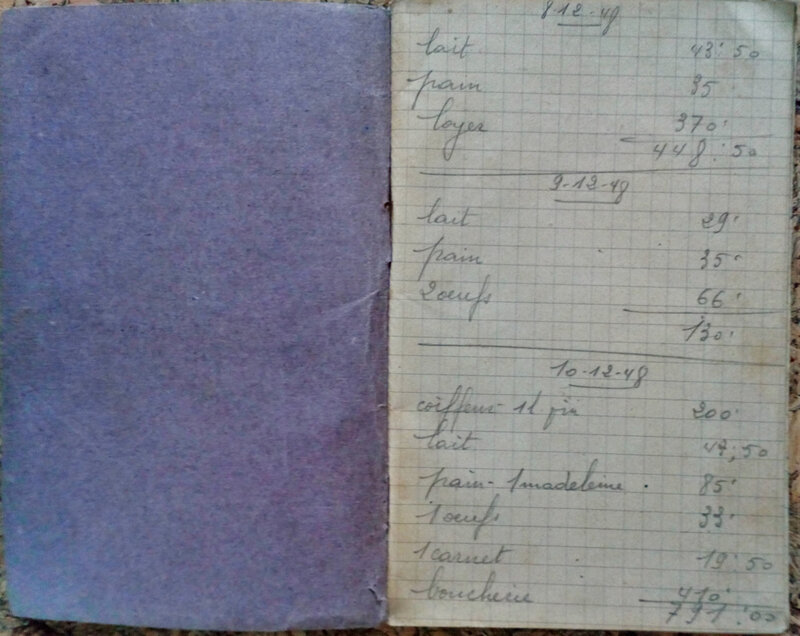 8-12-48
lait 43'50
pain 35
loyer 370'
448'50
9-12-48
lait 29'
pain 35'
2 œufs 66'
130'
10-12-48
coiffeur 200'
lait ,50
pain - 1 madeleine . 85'
1 œufs 33'
1 carnet 19'50
boucherie 410'
791'00